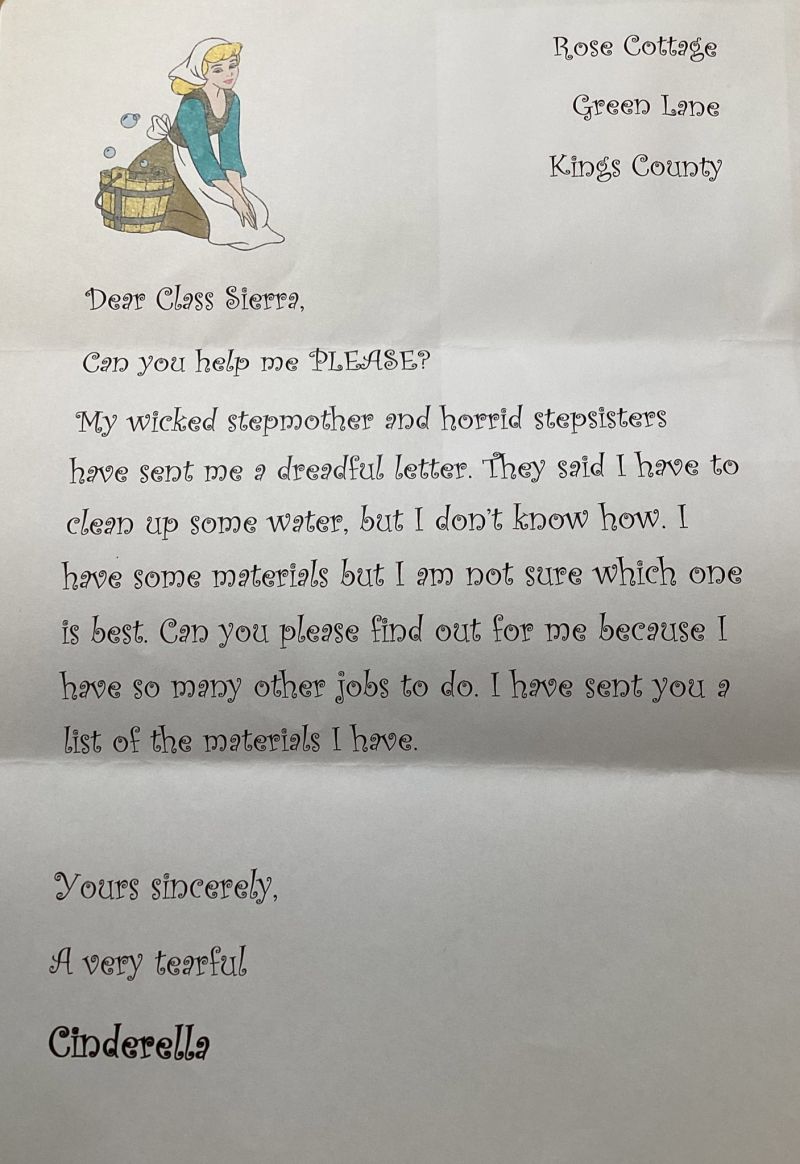 Rose Cottage
Green Lane
Kings County
Dear Class Sierra,
Can you help me PLEASE?
My wicked stepmother and horrid stepsisters
have sent me a dreadful letter. They said I have to
clean up some water, but I don't know how. I
have some materials but I am not sure which one
is best. Can you please find out for me because I
have so many other jobs to do. I have sent you a
list of the materials I have.
Yours sincerely,
A very tearful
Cinderella